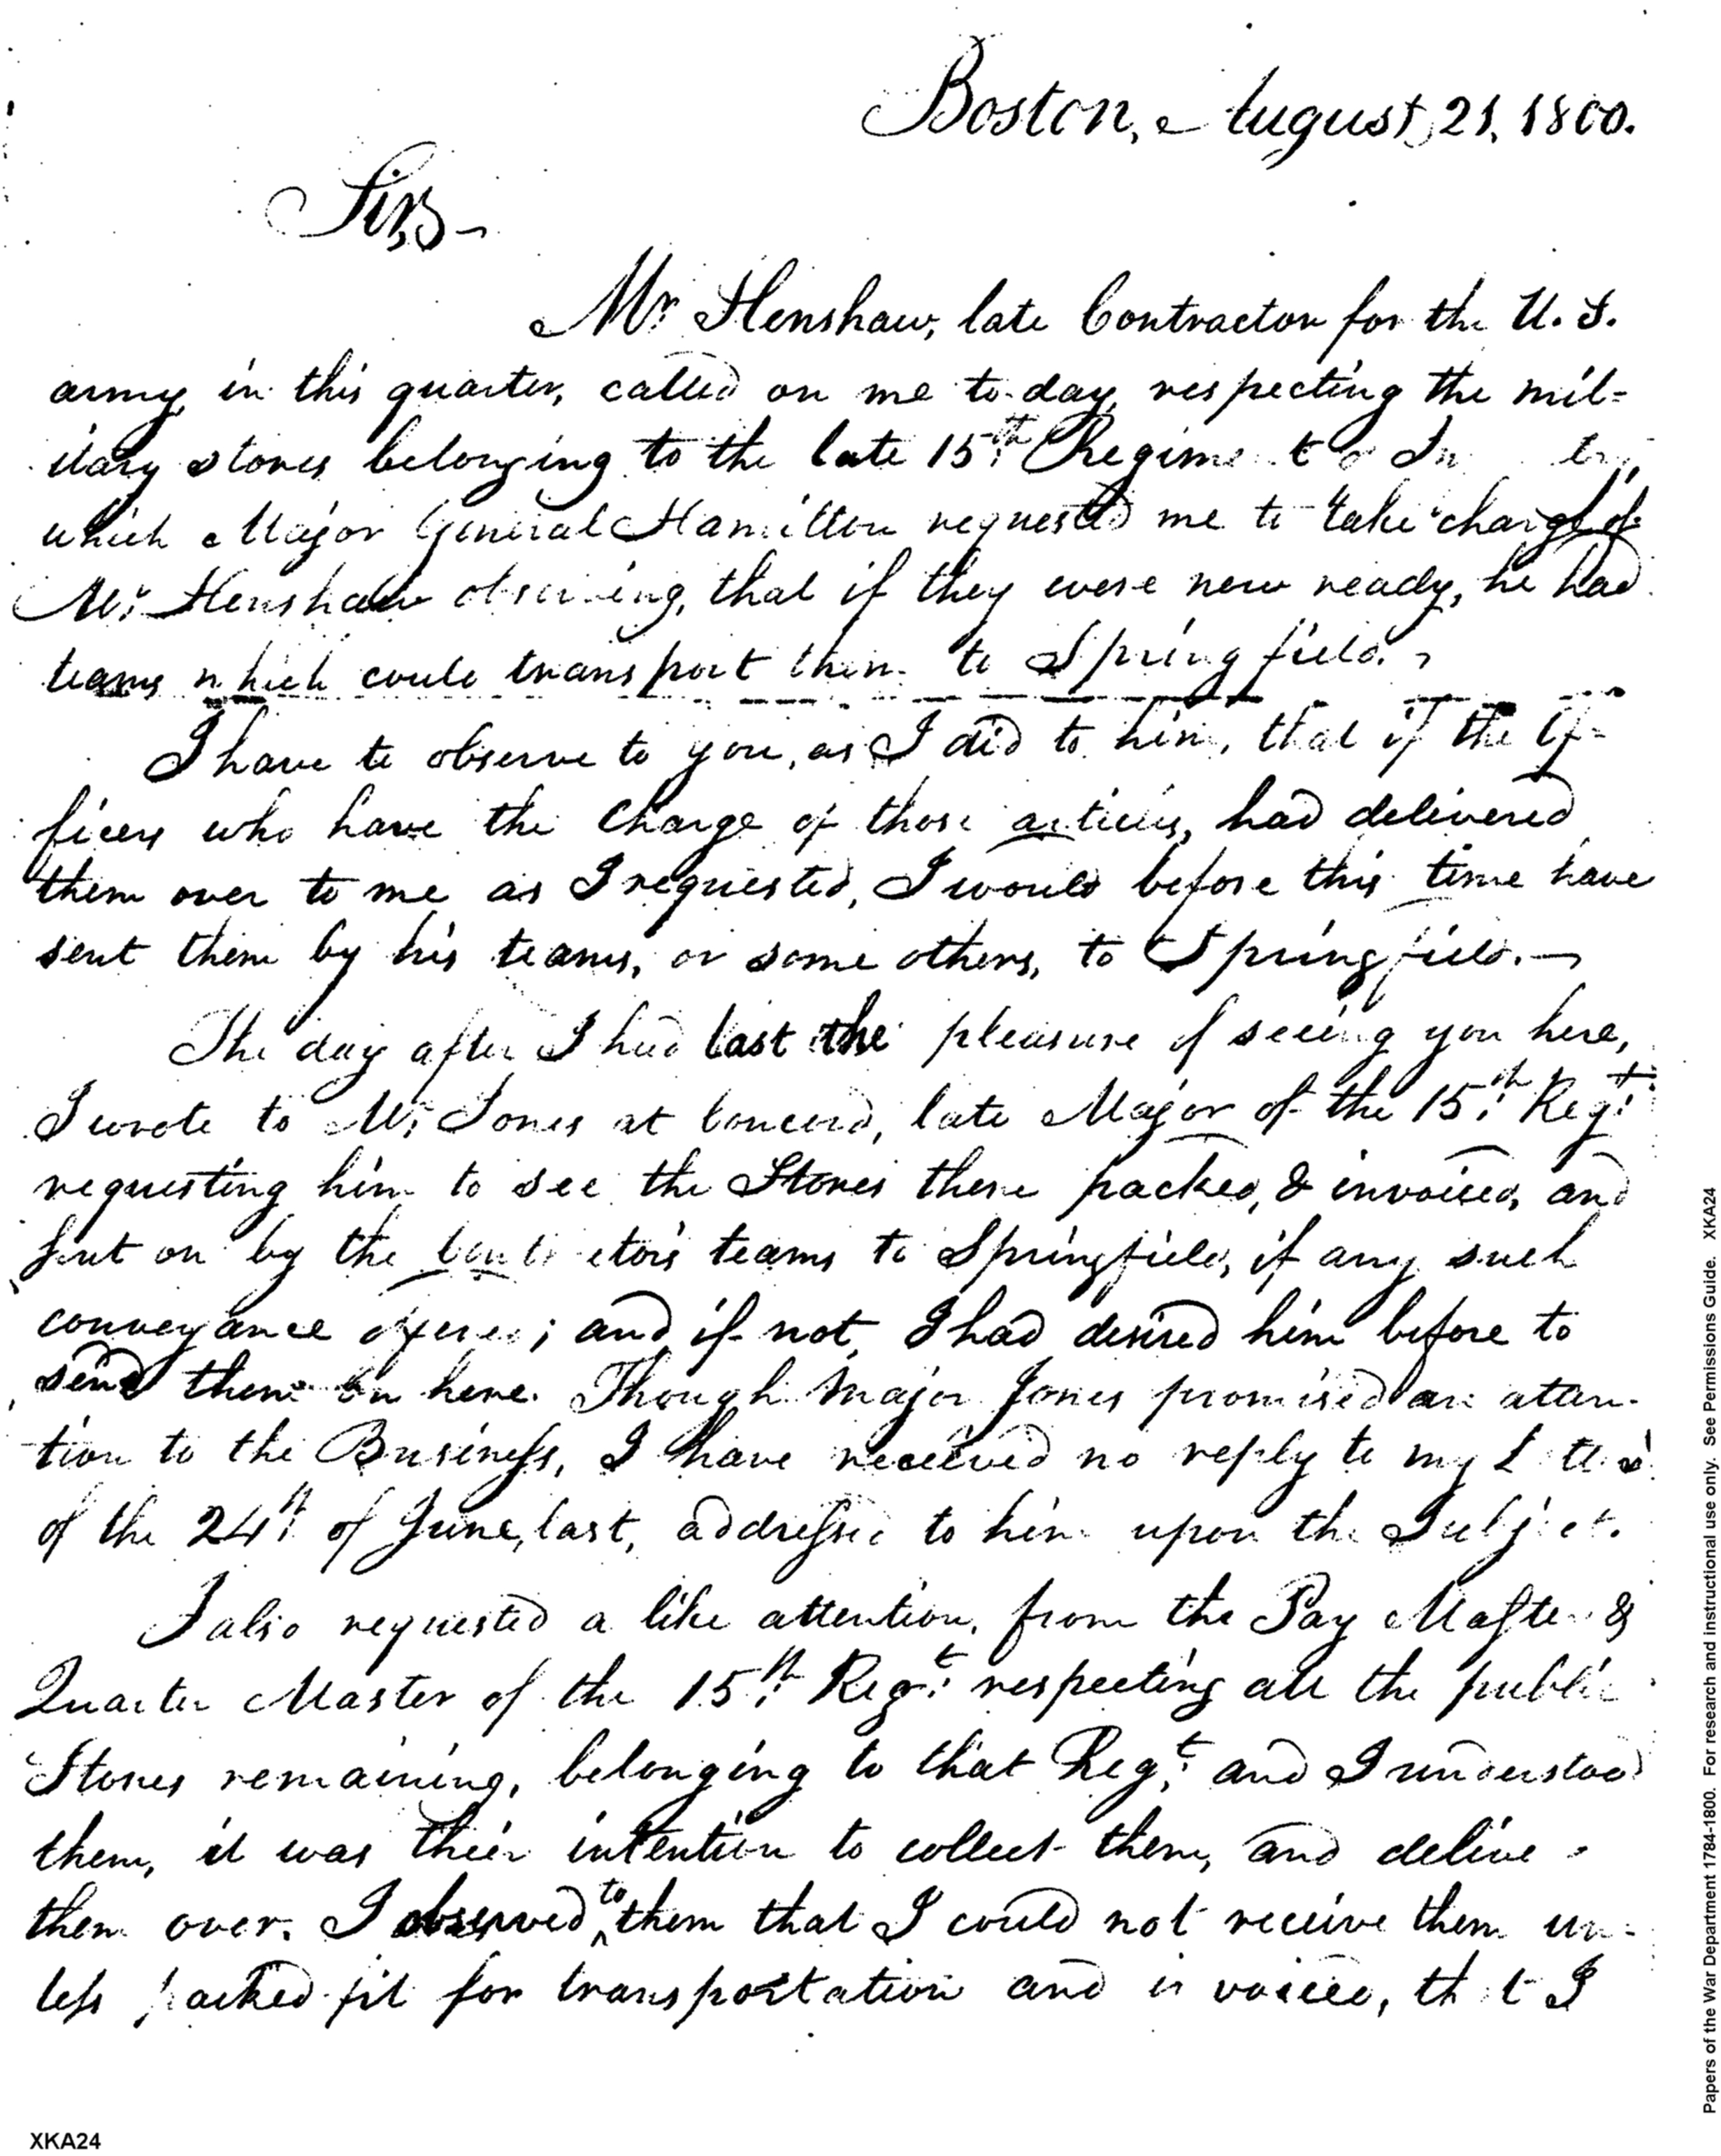 Boston, August, 21, 1800.
Sir,
Mr Henshaw, late Contractor for the U. S.
army in this quarter, called on me to-day, respecting the mil=
itary stores belonging to the late 15th Regime t o In try,
which Major General Hamilton requested me to take charge of
Mr Henshaw observing, that if they were now ready, he had
teams which could transport them to Springfield.
I have to observe to you, as I did to him, that if the Of=
ficers who have the Charge of those articles, had delivered
them over to me as I requested, I would before this time have
sent them by his teams, or some others, to Springfield.
The day after I had last the pleasure of seeing you here,
I wrote to Mr Jones at Concord, late Major of the 15th Regt
requesting him to see the Stores there packed, & invoiced, and
put on by the Contractors teams to Springfield, if any such
conveyance offered; and if not, I had desired him before to
send them on here. Though Major Jones promised an atten-
tion to the Business, I have received no reply to my Letter
of the 24th of June, last, addressed to him upon the Subject.
I also requested a like attention, from the Pay Master &
Quarter Master of the 15th Regt respecting all the public
Stores remaining, belonging to that Regt and I understood
them, it was their intention to collect them, and deliver
them over. I observed to them that I could not receive them un-
less packed fit for transportation and invoiced, that I
XKA24
Papers of the War Department 1784-1800. For research and instructional use only. See Permissions Guide. XKA24